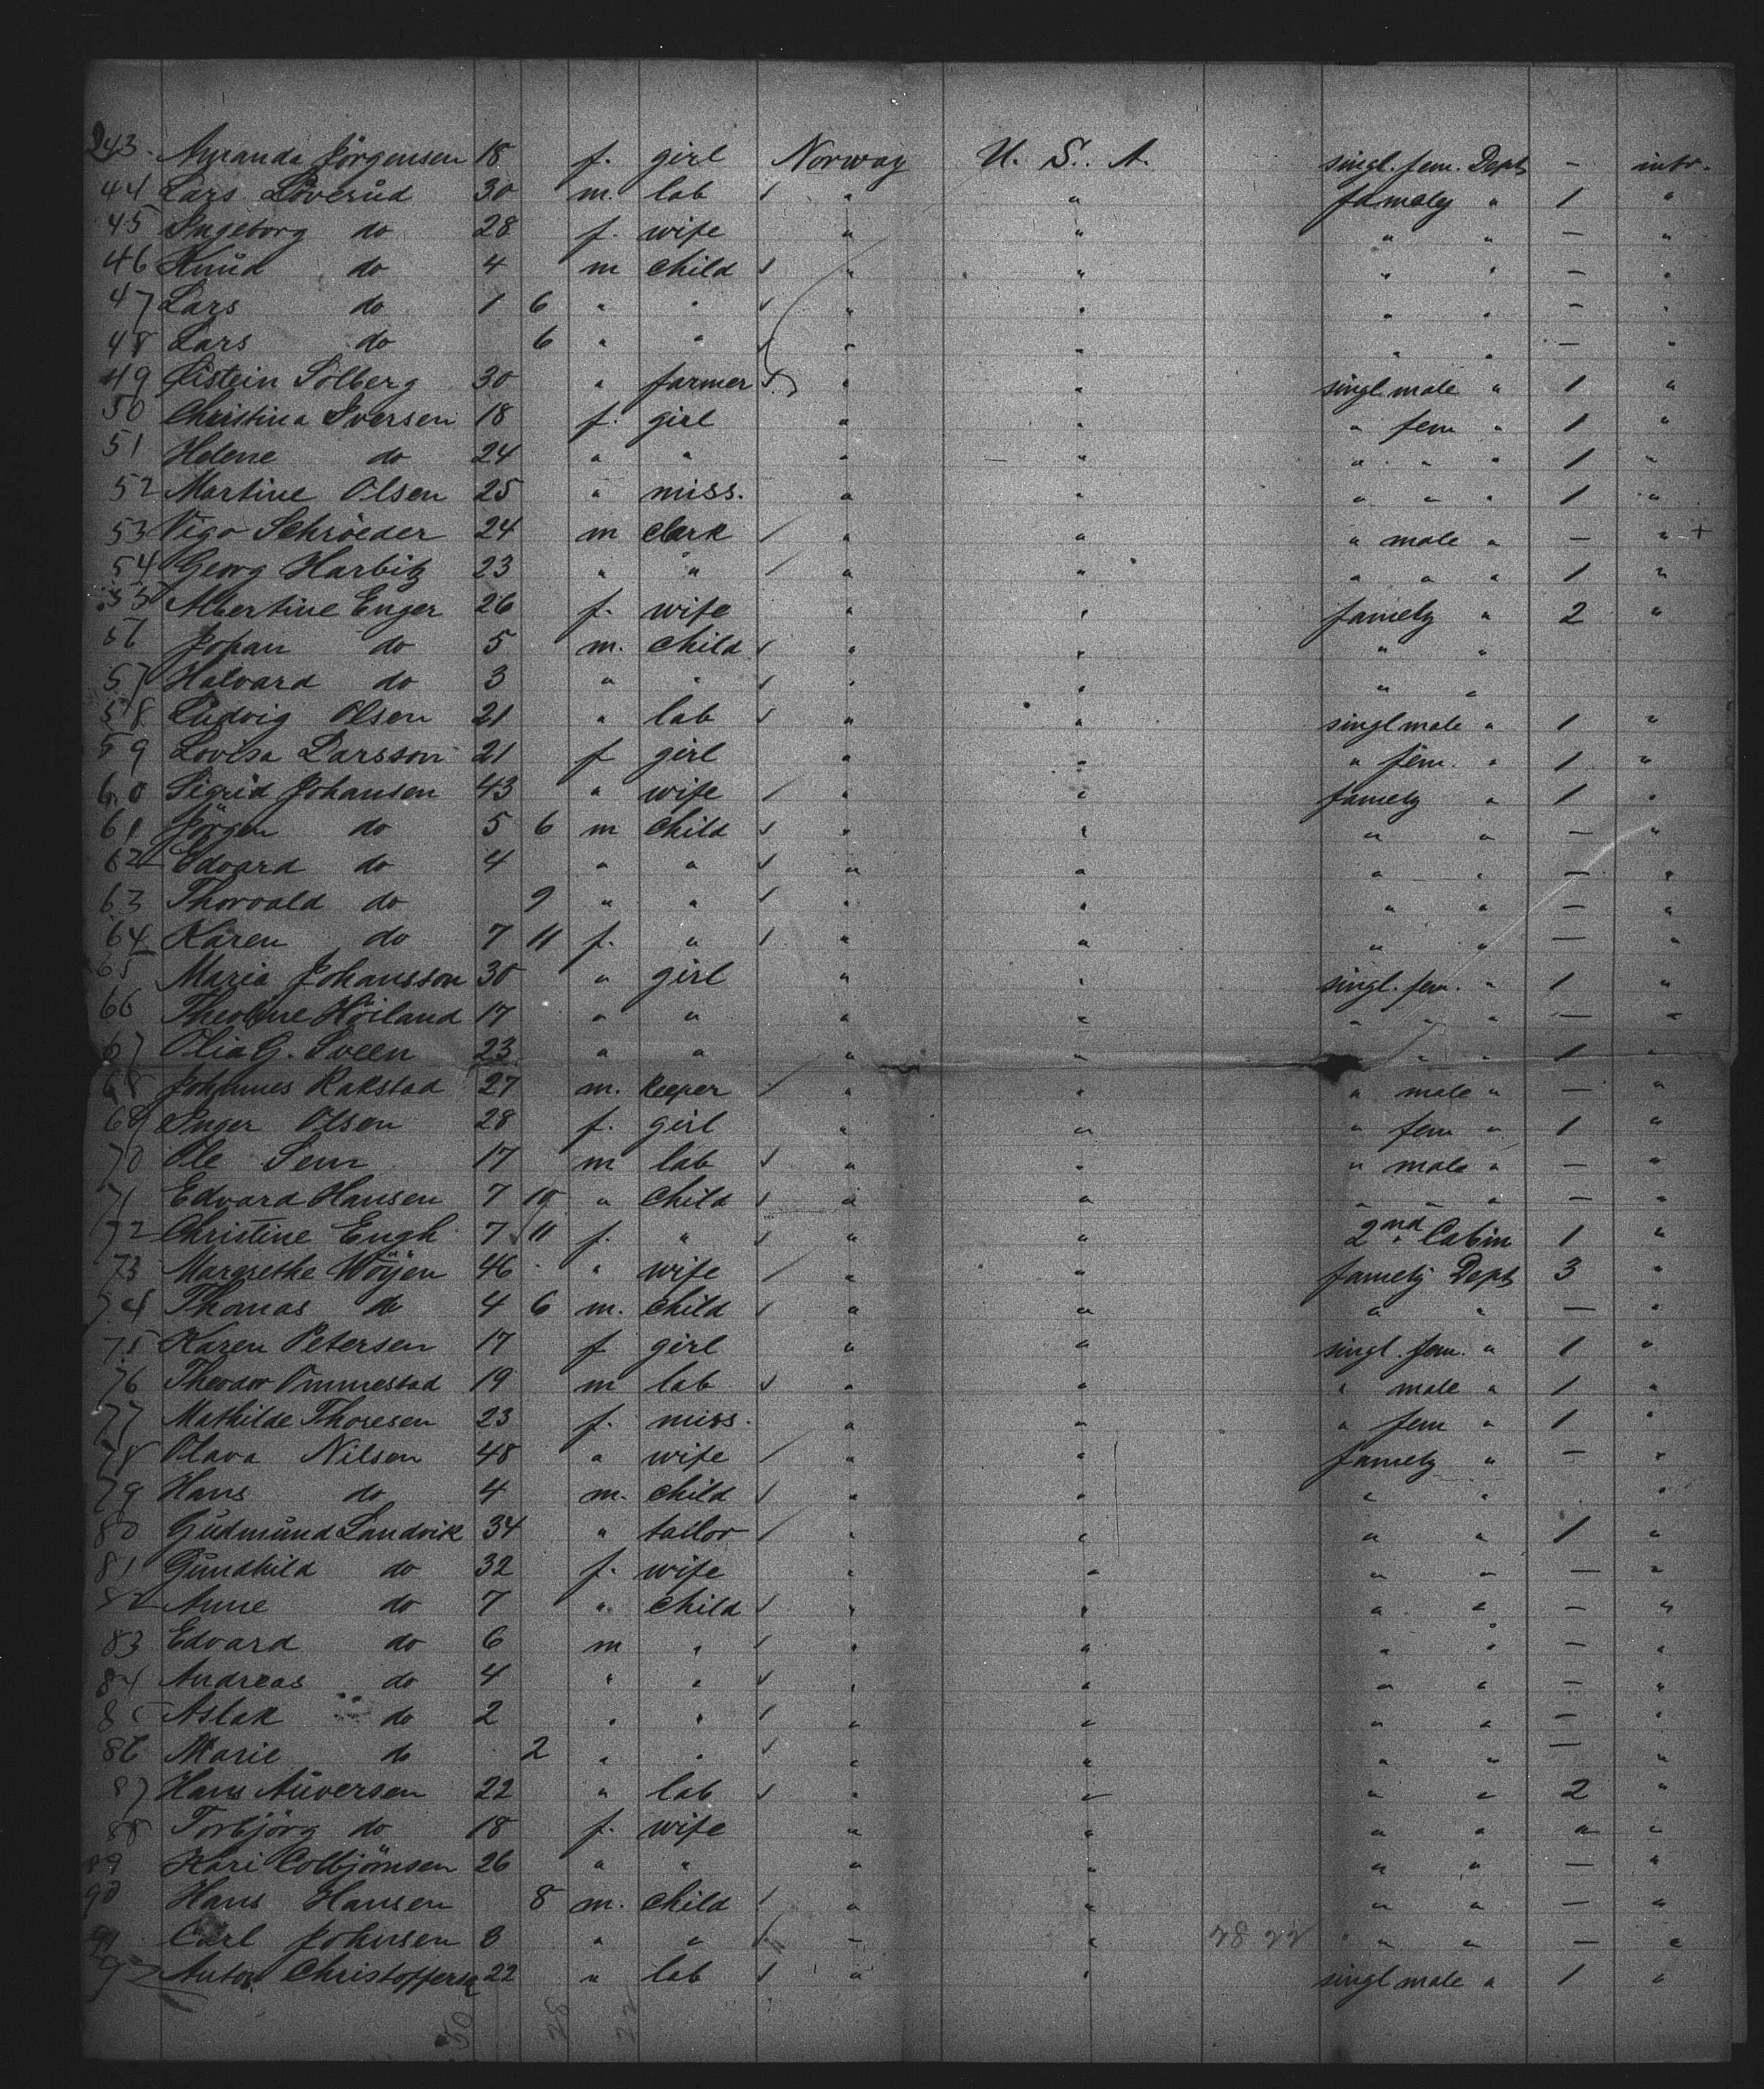 243. Amanda Jörgensen 18 f. girl Norway U. S. A. singl. fem. Dept — intr.
44 Lars Löverud 30 m. lab / " " famely " 1 "
45 Ingeborg do 28 f. wife " " " " — "
46 Knud do 4 m child / " " " " — "
47 Lars do 1 6 " " / " " " " — "
48 Lars do 6 " " / " " " " — "
49 Östein Solberg 30 " farmer / " " singl. male " 1 "
50 Christina Iversen 18 f. girl " " " fem " 1 "
51 Helene do 24 " " " " " " " 1 "
52 Martine Olsen 25 " miss. " " " " " 1 "
53 Vigo Schröeder 24 m clark / " " " male " — " +
54 Georg Harbitz 23 " " / " " " " " 1 "
55 Albertine Enger 26 f. wife " " famely " 2 "
56 Johan do 5 m. child / " " " "
57 Halvard do 3 " " / " " " "
58 Ludvig Olsen 21 " lab / " " singl male " 1 "
59 Lovisa Larsson 21 f girl " " " fem. " 1 "
60 Sigrid Johansen 43 " wife / " " famely " 1 "
61 Jörgen do 5 6 m child / " " " " — "
62 Edvard do 4 " " / " " " " — "
63 Thorvald do 9 " " / " " " " — "
64 Karen do 7 11 f. " / " " " " — "
65 Maria Johansson 30 " girl " " singl. fem. " 1 "
66 Theoline Höiland 17 " " " " " " " — "
67 Olia G. Sveen 23 " " " " " " 1 "
68 Johannes Rakstad 27 m. keeper / " " " male " — "
69 Inger Olsen 28 f. girl " " " fem " 1 "
70 Ole Sem 17 m lab / " " " male " — "
71 Edvard Hansen 7 10 " child / " " " " " — "
72 Christine Engh 7 11 f. " / " " 2nd Cabin 1 "
73 Margrethe Wöyen 46 " wife / " " famely Dept 3 "
74 Thomas do 4 6 m. child / " " " " — "
75 Karen Petersen 17 f girl " " singl. fem. " 1 "
76 Theodor Ommestad 19 m lab / " " " male " 1 "
77 Mathilde Thoresen 23 f. miss. " " " fem " 1 "
78 Olava Nilsen 48 " wife / " " famely " — "
79 Hans do 4 m. child / " " " " "
80 Gudmund Landvik 34 " tailor / " " " " 1 "
81 Gundhild do 32 f. wife " " " " — "
82 Anne do 7 " child / " " " " — "
83 Edvard do 6 m " / " " " " — "
84 Andreas do 4 " " / " " " " — "
85 Aslak do 2 " " / " " " " — "
86 Marie do 2 " " / " " " " — "
87 Hans Auversen 22 " lab / " " " " 2 "
88 Torbjörg do 18 f. wife " " " " " "
89 Kari Colbjörnsen 26 " " " " " " — "
90 Hans Hansen 8 m. child / " " " " — "
91 Carl Johnsen 3 " " / " " 28 22 " " — "
92 Anton Christoffersen 22 " lab / " " singl male " 1 "
50 28 22